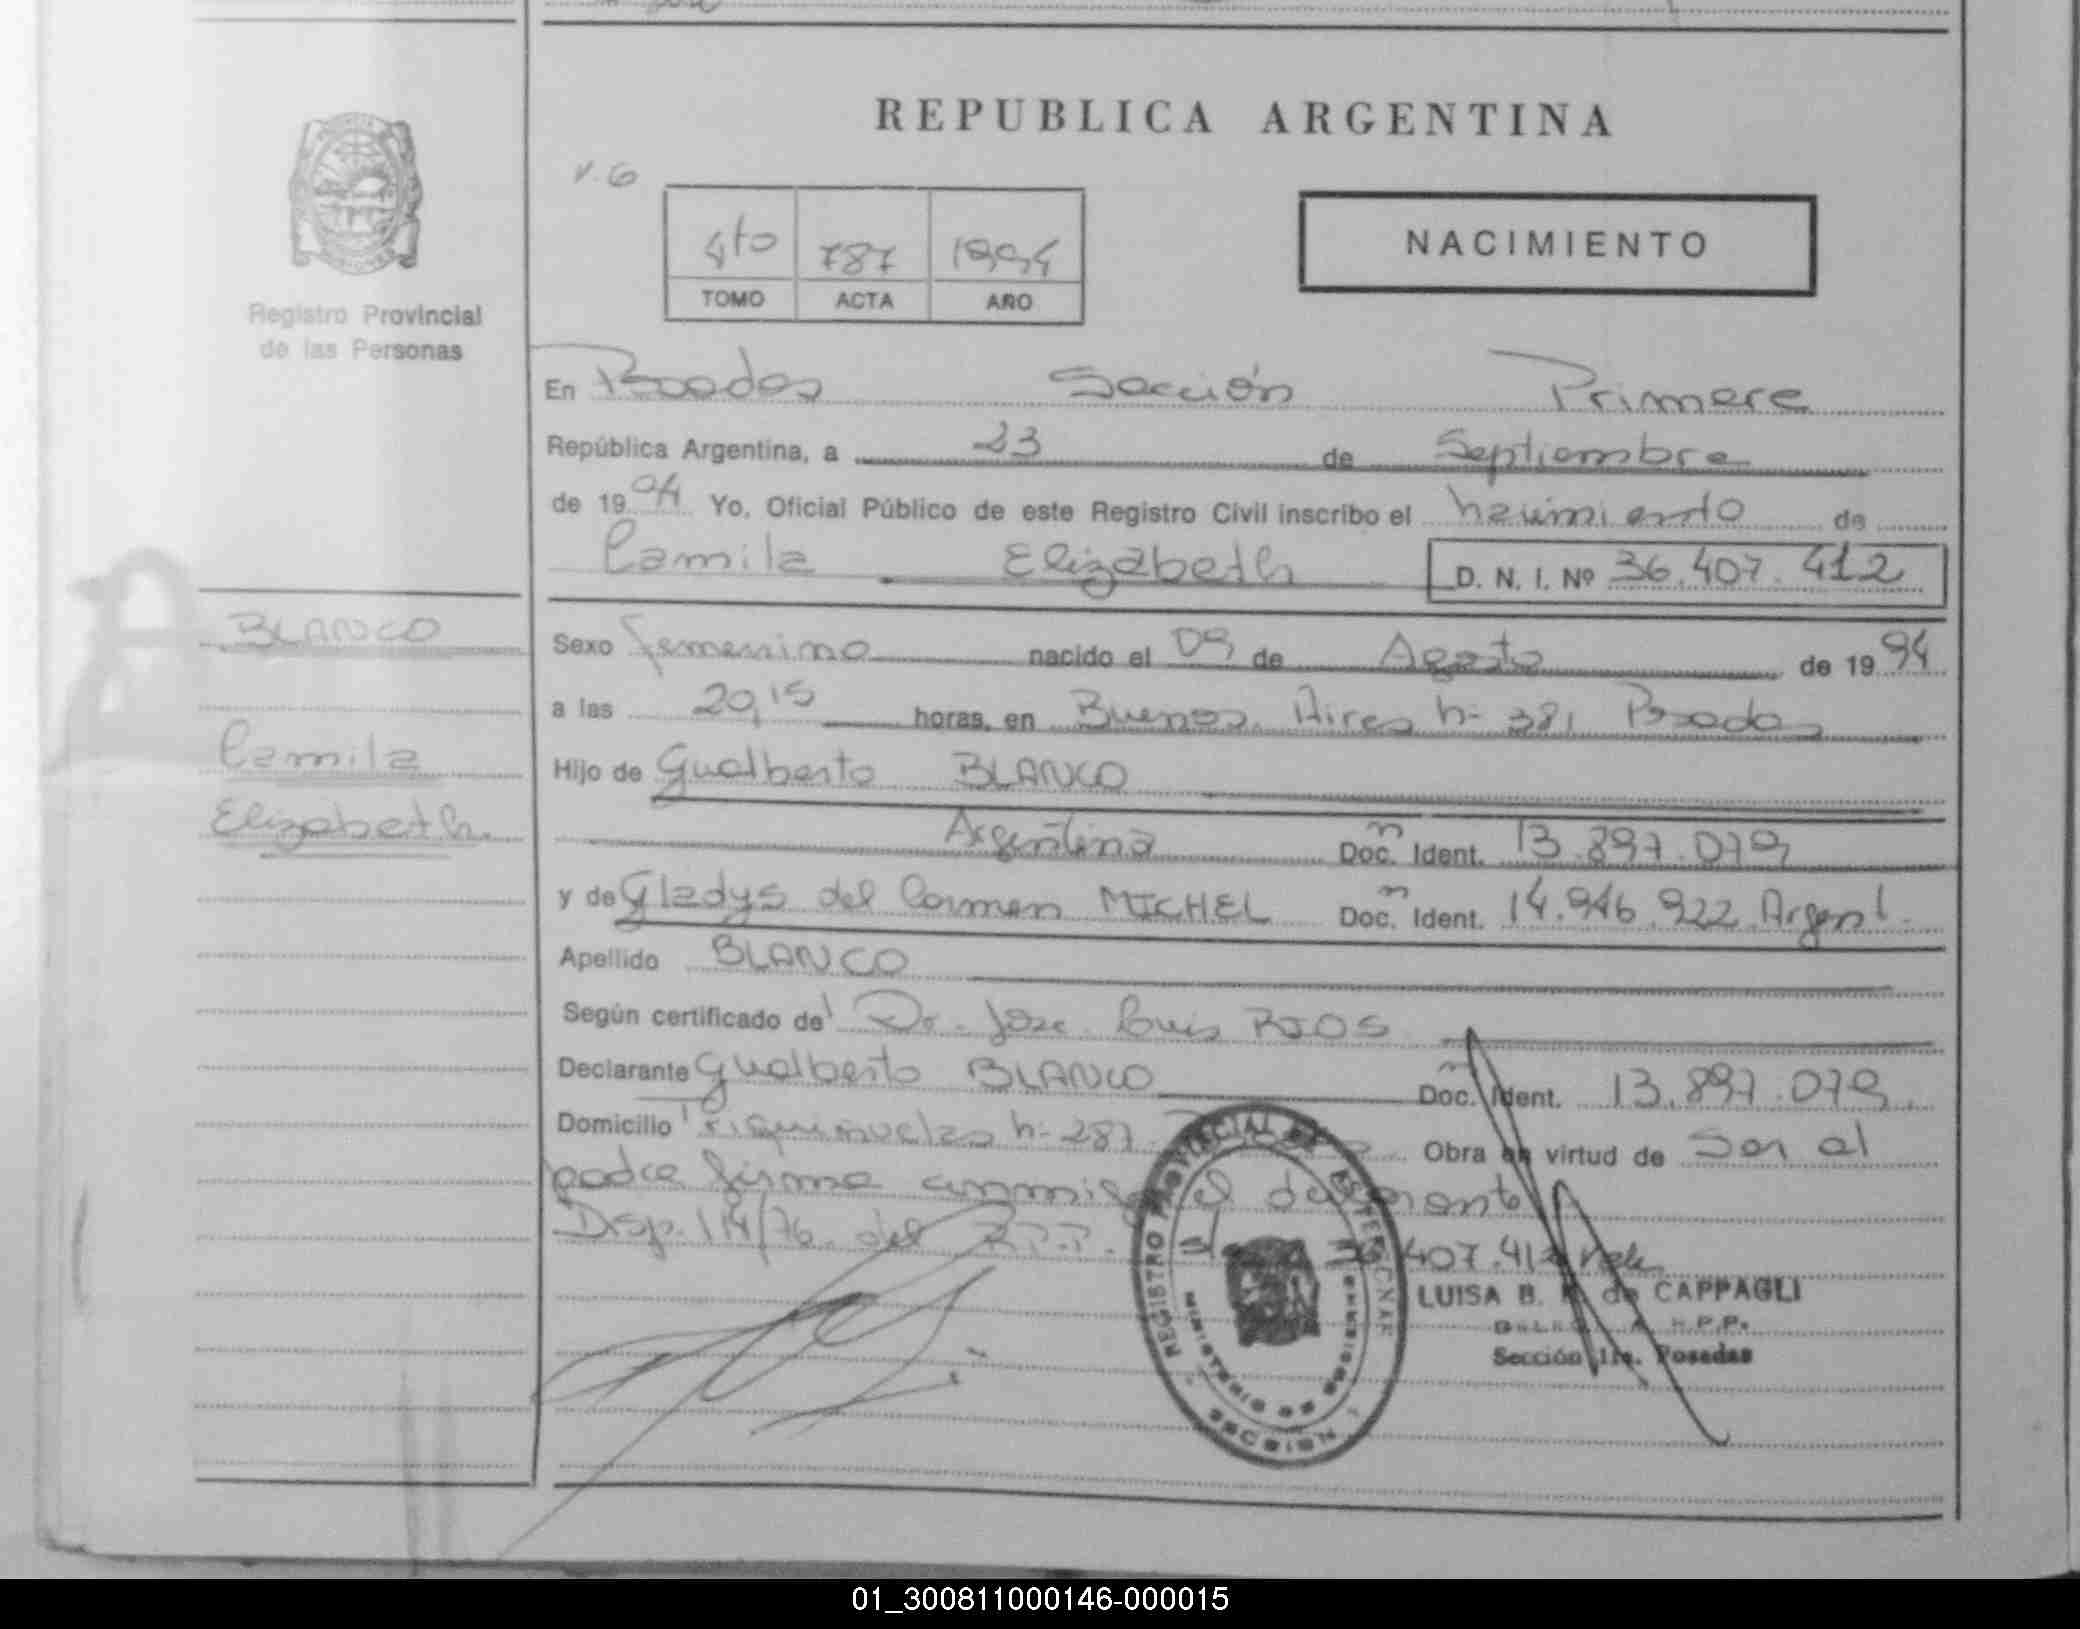 REPUBLICA ARGENTINA
V. 6
4to 787 1994
TOMO ACTA AÑO
NACIMIENTO
Registro Provincial
de las Personas
En Posadas Sección Primera
República Argentina, a 23 de Septiembre
de 1994 Yo, Oficial Público de este Registro Civil inscribo el nacimiento de
Camila Elizabeth D. N. I. Nº 36.407.412
BLANCO
Camila
Elizabeth.
Sexo femenino nacido el 09 de Agosto de 1994
a las 20,15 horas, en Buenos Aires n- 381 Posadas
Hijo de Gualberto BLANCO
Argentina Doc. Ident. 13.897.079
y de Gladys del Carmen MICHEL Doc. Ident. 14.946.922 Argent.
Apellido BLANCO
Según certificado de Dr. Jose Luis RIOS
Declarante Gualberto BLANCO Doc. Ident. 13.897.079.
Domicilio n- 287 Obra en virtud de ser el
padre firma conmigo el declarante
Disp. 114/76 del R.P.P. 407.412 Vale
REGISTRO PROVINCIAL DE
MINISTERIO DE
LUISA B. de CAPPAGLI
R.P.P.
Sección 1ra. Posadas
01_300811000146-000015